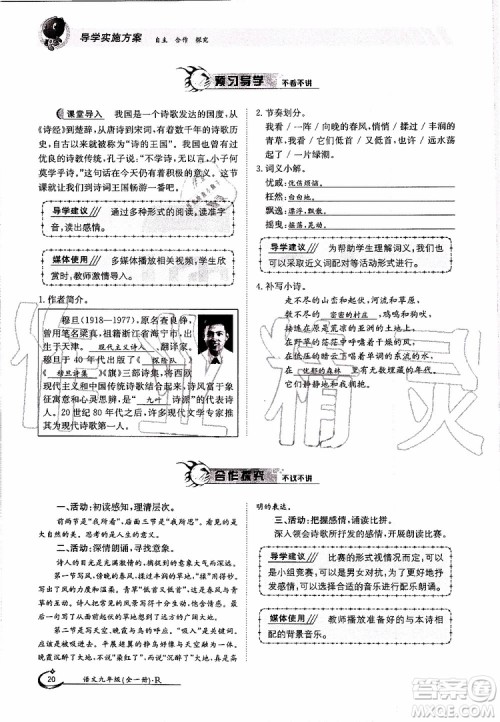 导学实施方案 自主 合作 探究
预习导学 不看不讲
课堂导入 我国是一个诗歌发达的国度，从
《诗经》到楚辞，从唐诗到宋词，有着数千年的诗歌历
史，自古以来就被称为“诗的王国”，我国有着极为
优良的诗教传统，孔子说：“不学诗，无以言，小子何
莫学乎诗。”这话在今天仍有着积极的意义。这节
课就让我们到诗词王国畅游一番吧。
导学建议 通过多种形式的阅读，读准字
音，读出感情。
媒体使用 多媒体播放相关图片，学生欣
赏时，教师激情导入。
1.作者简介。
穆旦(1918—1977)，原名查良铮，
曾用笔名梁真，祖籍浙江省海宁市，出
生于天津。现代主义诗人、翻译家。
穆旦于40年代出版了《探险队》
《穆旦诗集》《旗》三部诗集，将西欧
现代主义和中国传统诗歌结合起来，诗风富于象
征寓意和心灵思辨，是“九叶诗派”的代表诗
人。20世纪80年代之后，许多现代文学专家推其
为现代诗歌第一人。
2.节奏划分。
我看/一阵/向晚的春风/悄悄/揉过/丰润的
青草，/我看/它们/低首/又低首，/也许/远水/荡起
了/一片绿潮。
3.词义小解。
优戚：优伤烦恼。
枉然：白白地。
飘逸：漂浮，飘散。
摇曳：摇荡，晃动。
导学建议 为帮助学生理解词义，我们可以
采取近义词配对等活动形式进行。
4.补写小诗。
走不尽的山峦的起伏，河流和草原，
数不尽的密密的村庄，鸡鸣和狗吠，
接连在原是荒凉的亚洲的土地上，
在野草的茫茫中呼啸着干燥的风，
在低压的暗云下唱着单调的东流的水，
在忧郁的森林里有无数埋藏的年代。
它们静静地和我拥抱：
合作探究 不议不讲
一、活动：初读感知，理清层次。
前两节“我”观自然，后面三节“我”思自然，前面的
内容是大自然的律动，后面的思考是人生的意义。
二、活动：深情朗诵，寻找意象。
诗人目光充满激情，他捕捉的意象自然充满无
限的生机和活力。
第一节写风，风与草相互映衬，春风与青草是有
生命的，人格化的。青草“低首又低首”既写出风与青
草的亲昵，又写青草起伏的风景恰好与第四句远水荡
绿潮相对。
第二节是唱晚，晚霞与飞鸟相映衬。飞鸟展翅，
晚霞似被飞鸟“吸入”一般。“吸入”一词非常精妙，
描绘美丽的静鸟和晚霞融合在一起的美景，大地的
“沉醉”与流云的“红晕”相对，也是诗人内心感情鲜
明的表达。
三、活动：把握感情，诵读比拼。
深入领会诗歌所要表达的感情，进行诵读比赛。
导学建议 比赛的形式视情况而定，可
以是小组竞赛，可以是男女对抗，也可以在
把握感情的基础上，选择合适的音乐进行配乐朗诵。
媒体使用 教师播放或演唱与本诗相
配的背景音乐。
20 语文九年级(全一册)·R
作业精灵